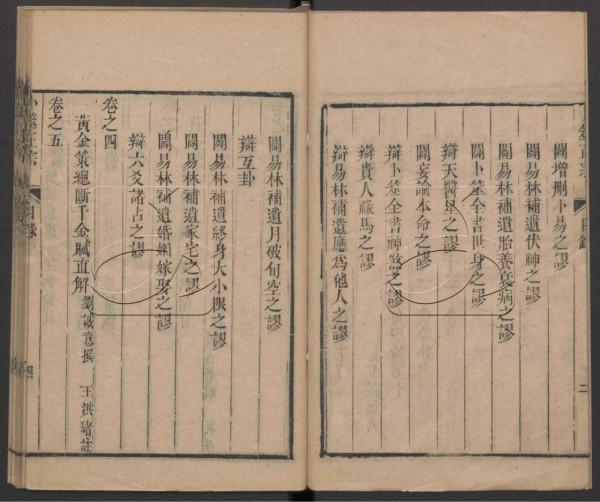 闢增刪卜易之謬
闢易林補遺伏神之謬
闢易林補遺胎養衰病之謬
闢卜筮全書世身之謬
辯天醫星之謬
闢妄論本命之謬
辯卜筮全書神煞之謬
辯貴人祿馬之謬
辯易林補遺應為他人之謬
二
闢易林補遺月破旬空之謬
辯互卦
闢易林補遺終身大小限之謬
闢易林補遺家宅之謬
闢易林補遺婚姻嫁娶之謬
辯六爻諸占之謬
卷之四
黃金策總斷千金賦直解 劉誠意撰 王洪緒註
卷之五